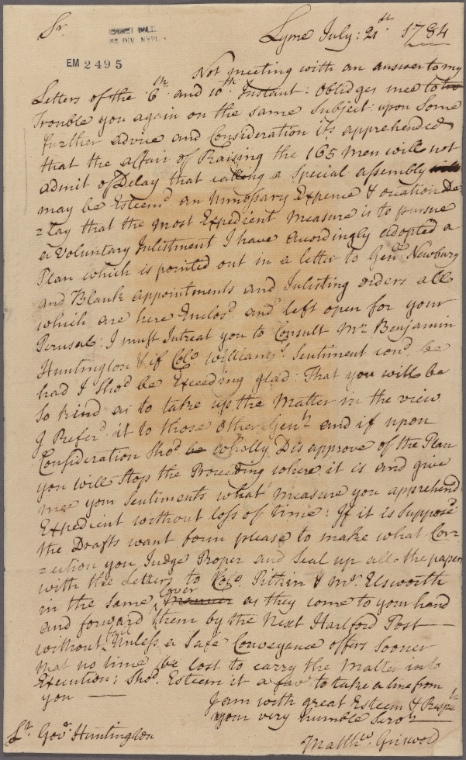 Sr.
Lyme July: 21st 1784
EM 2495
Not meeting with an answer to my
Letters of the 6th and 10th Instant: obliges me to
Trouble you again on the same Subject: upon Some
further advice and Consideration its apprehended
that the affair of Raising the 165 men will not
admit of Delay that calling a Special assembly
may be Esteemd an unnessary Expence & ocation De
=lay that the most Expedient measure is to pursue
a Voluntary Inlistment I have acordingly adopted a
Plan which is pointed out in a letter to Genl Newbury
and Blank appointments and Inlisting orders all
which are here Inclosd and left open for your
Perusal: I must Intreat you to Consult Mr Benjamin
Huntington & if Colo Williams's Sentiment coud. be
had I Shod. be Exceeding glad: That you will be
So kind as to take up the Matter in the view
I Referd it to those other Gentn and if upon
Consideration Shod be wholly Dis approve of the Plan
you will Stop the Proceeding where it is and give
mee your Sentiments what measure you apprehend
Expedient without loss of Time: If it is Supposed
the Drafts want form please to make what Cor=
=ection you Judge Proper and Seal up all the papers
with the Letters to Colo. Pitkin & Mr. Elsworth
in the Same Cover as they come to your hand
and forward them by the Next Harford Post
without Unless a Safe Conveyance offers Sooner
that no time be lost to carry the Matter into
Execution: Shod. Esteem it a favr to take a line from
you
I am with great Esteem & Respt
your very humble Servt
Lt. Govr Huntington
Matthw. Griswold